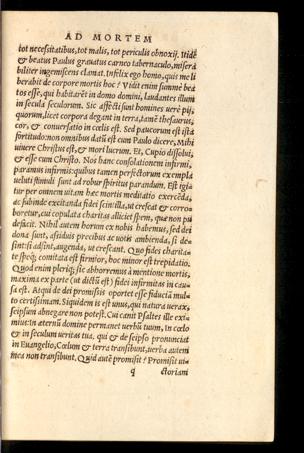 AD MORTEM
tot necesitatibus, tot malis, tot periculis obnoxij. Itidē
& beatus Paulus grauatus carneo tabernaculo, miserā
biliter ingemiscens clamat. Infelix ego homo, quis me li
berabit de corpore mortis hoc? Vidit enim summè bea
tos esse, qui habitarēt in domo domini, laudantes illum
in secula seculorum. Sic affecti sunt homines uerè pij,
quorum, licet corpora degant in terra, tamē thesaurus,
cor, & conuersatio in cœlis est. Sed paucorum est ista
fortitudo: non omnibus datū est cum Paulo dicere, Mihi
uiuere Christus est, & mori lucrum. Et, Cupio dissolui,
& esse cum Christo. Nos hanc consolationem infirmi,
paramus infirmis: quibus tamen perfectorum exempla
ueluti stimuli sunt ad robur spiritus parandum. Est igi
tur per omnem uitam hæc mortis meditatio exercēda,
ac subinde excitanda fidei scintilla, ut crescat & corro-
boretur, cui copulata charitas alliciet spem, quæ non pu
deficit. Nihil autem horum ex nobis habemus, sed dei
dona sunt, assiduis precibus ac uotis ambienda, si de-
sint: si adsint, augenda, ut crescant. Quo fides charita-
te speq́; comitata est firmior, hoc minor est trepidatio.
Quod enim pleriq; sic abhorremus à mentione mortis,
maxima ex parte (ut dictū est) fidei infirmitas in cau-
sa est. Atqui de dei promissis oportet esse fiducia mul-
to certissimam. Siquidem is est unus, qui natura uerax,
seipsum abnegare non potest. Cui canit Psaltes ille exi-
mius: in æternū domine permanet uerbū tuum, in cœlo
& in seculum ueritas tua, qui & de seipso pronunciat
in Euangelio, Cœlum & terra transibunt, uerba autem
mea non transibunt. Quid autē promisit? Promisit ui-
q ctoriam